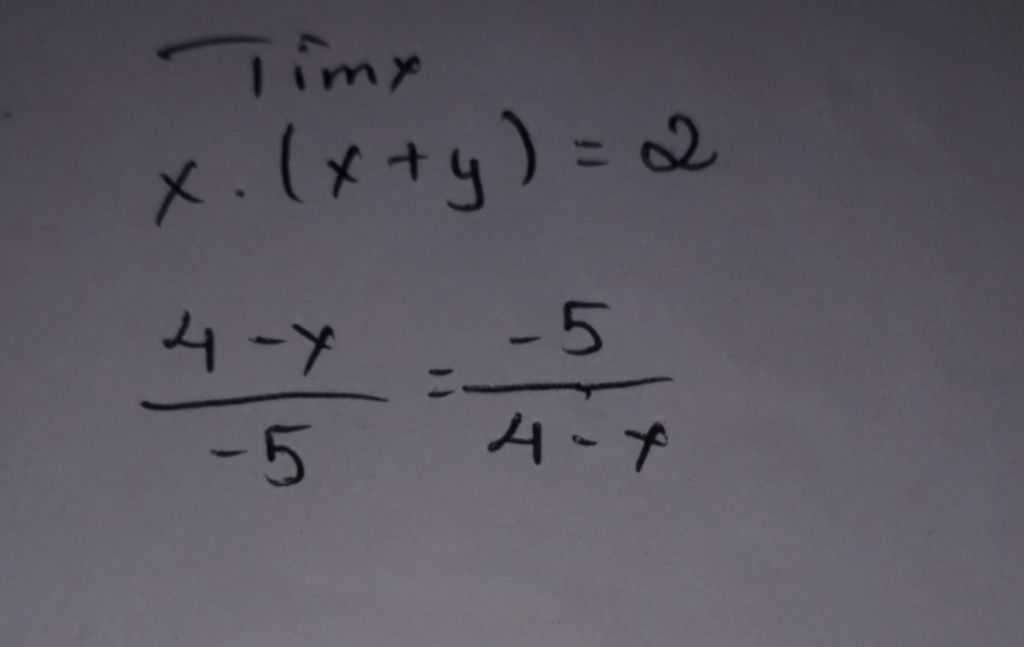 Tìm x
x . (x + y) = 2
4 - x / -5 = -5 / 4 - x